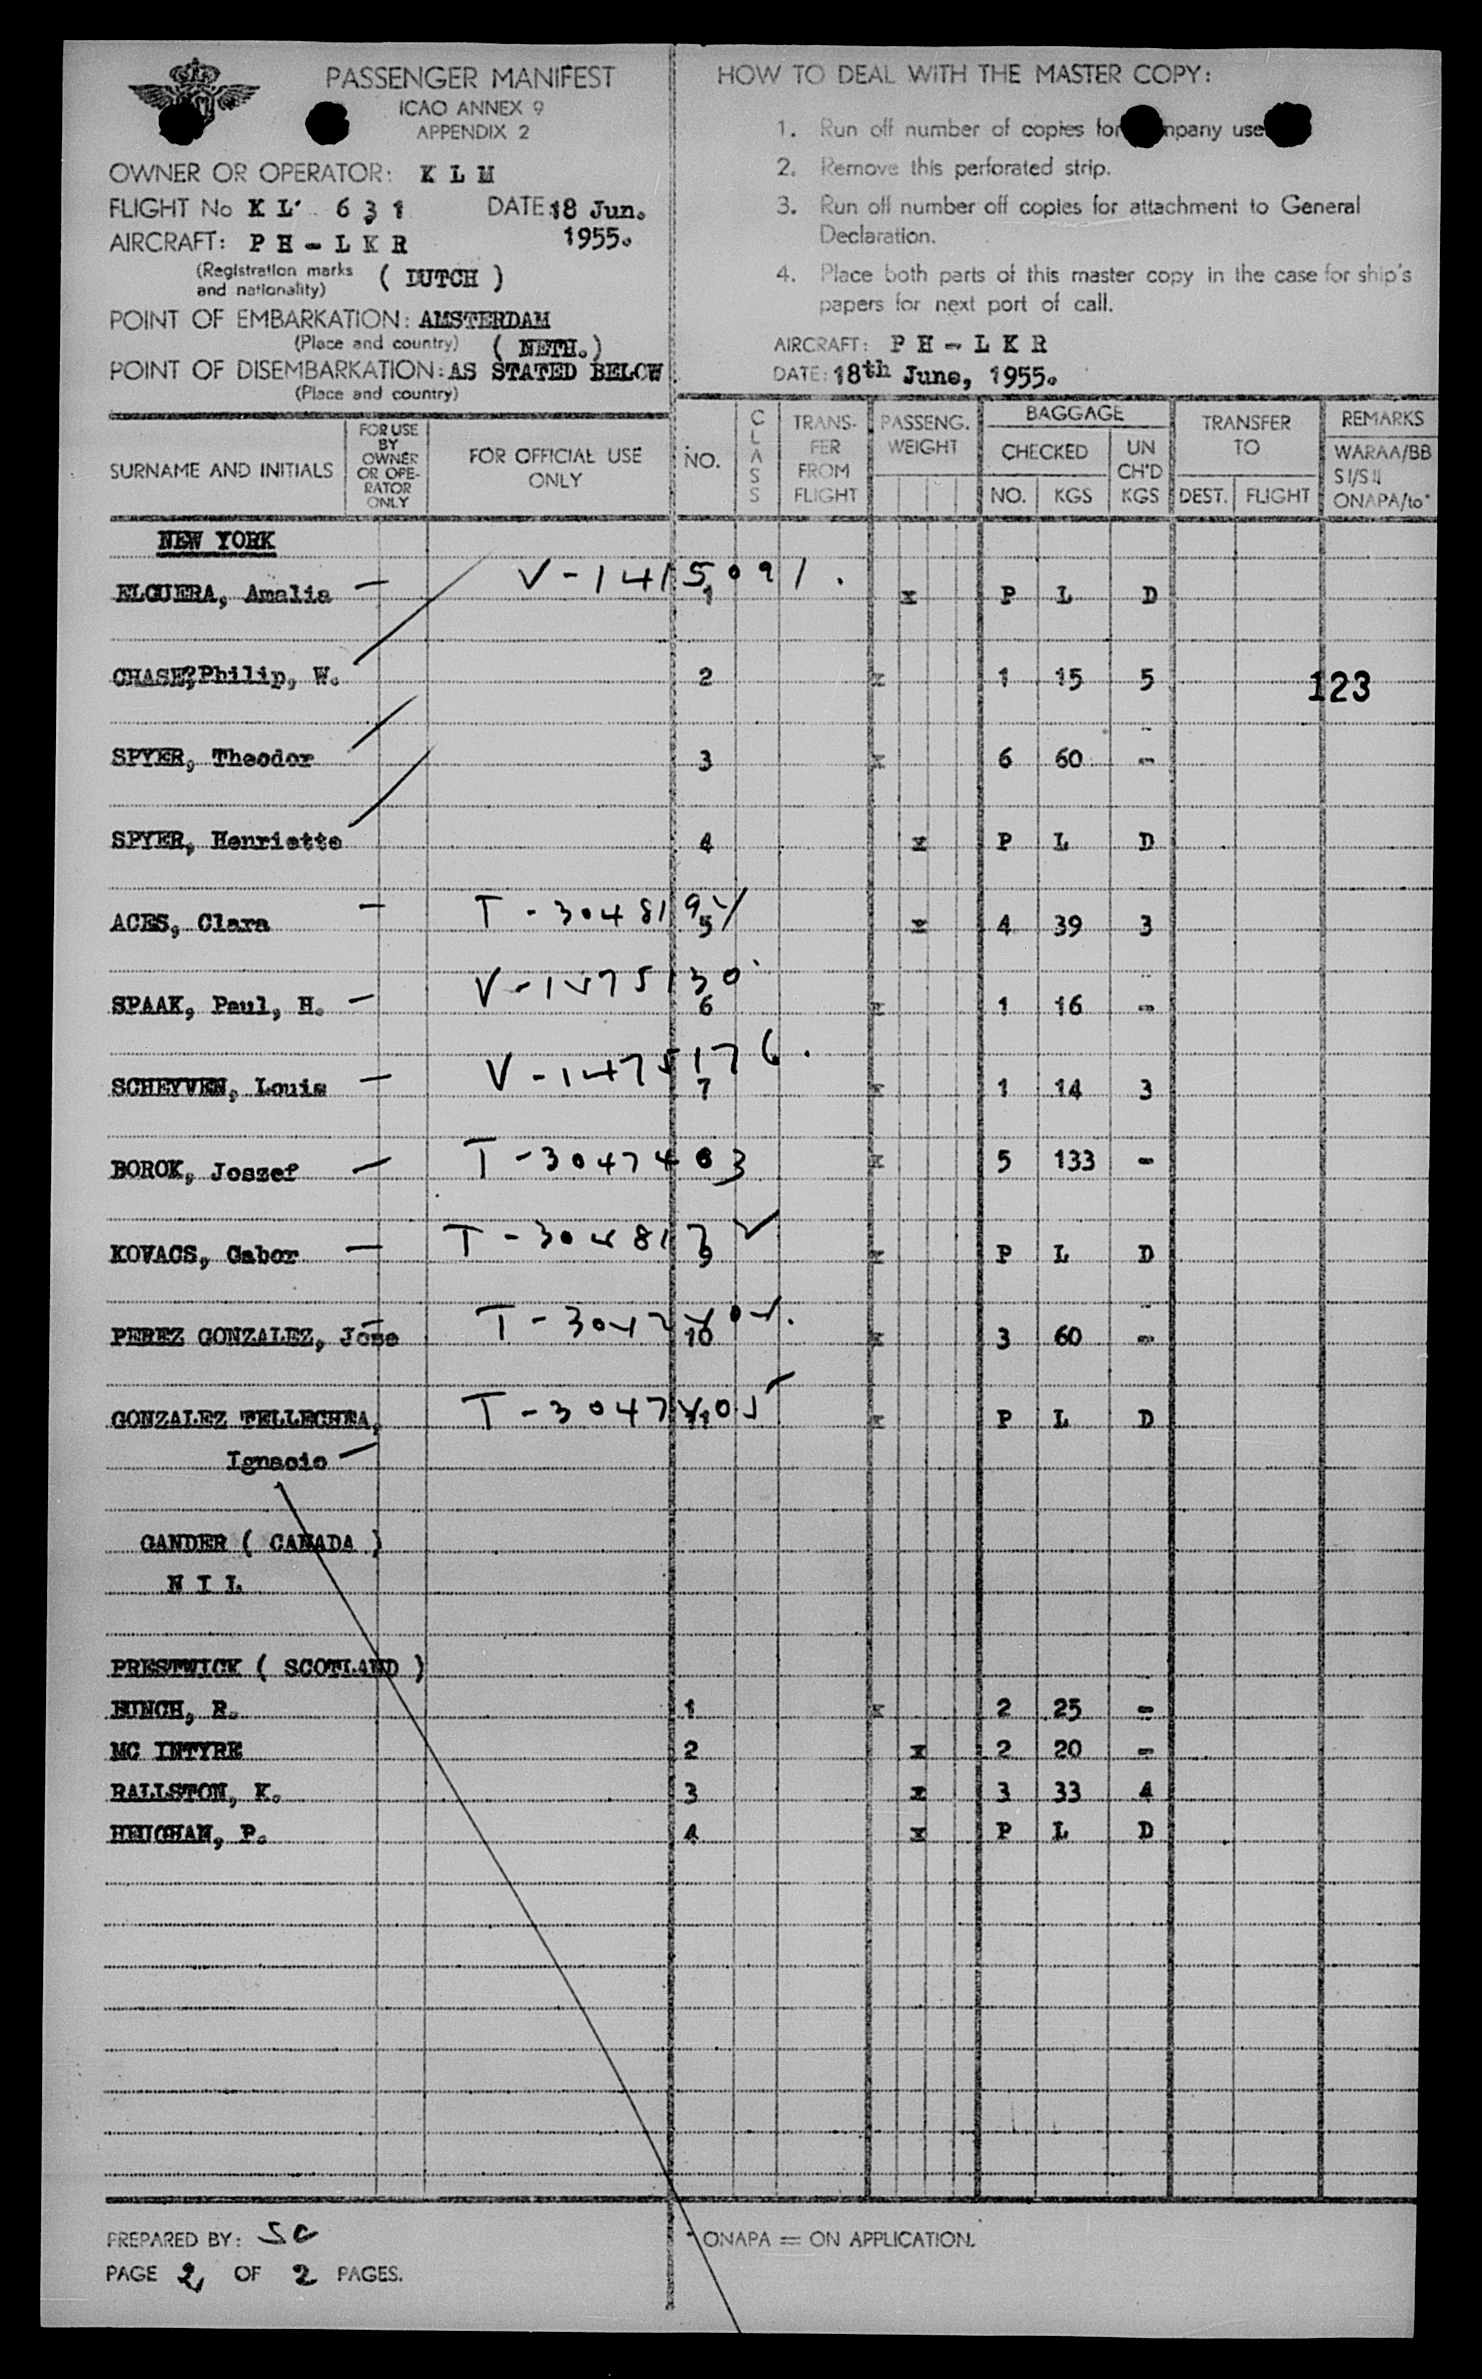 PASSENGER MANIFEST
ICAO ANNEX 9
APPENDIX 2
OWNER OR OPERATOR: K L M
FLIGHT No K L 6 3 1 DATE: 18 Jun. 1955.
AIRCRAFT: P H - L K R
(Registration marks and nationality) ( DUTCH )
POINT OF EMBARKATION: AMSTERDAM
(Place and country) ( NETH.)
POINT OF DISEMBARKATION: AS STATED BELOW
(Place and country)
HOW TO DEAL WITH THE MASTER COPY:
1. Run off number of copies for use
2. Remove this perforated strip.
3. Run off number off copies for attachment to General
Declaration.
4. Place both parts of this master copy in the case for ship's
papers for next port of call.
AIRCRAFT: P H - L K R
DATE: 18th June, 1955.
SURNAME AND INITIALS
FOR USE BY OWNER OR OPE-RATOR ONLY
FOR OFFICIAL USE ONLY
NO.
CLASS
TRANS-FER FROM FLIGHT
PASSENG. WEIGHT
BAGGAGE
CHECKED
NO. KGS
UN CH'D KGS
TRANSFER TO
DEST. FLIGHT
REMARKS
WARAA/BB
S I/S II
ONAPA/to*
NEW YORK
ELGUERA, Amalia — V-1415091. 1 x P L D
CHASE, Philip, W. 2 x 1 15 5
123
SPYER, Theodor 3 x 6 60 -
SPYER, Henriette 4 x P L D
ACES, Clara — 5 x 4 39 3
SPAAK, Paul, H. — 6 x 1 16 -
SCHEYVEN, Louis — V-1475176. 7 x 1 14 3
BOROK, Joszef — T-3047403 x 5 133 -
KOVACS, Gabor — 9 x P L D
PEREZ GONZALEZ, Jose 10 x 3 60 -
GONZALEZ TELLECHEA, T-3047405 11 x P L D
Ignacio —
GANDER ( CANADA )
N I L
PRESTWICK ( SCOTLAND )
HINCH, R. 1 x 2 25 -
MC INTYRE 2 x 2 20 -
RALLSTON, K. 3 x 3 33 4
HEUGHAN, P. 4 x P L D
PREPARED BY: SC
PAGE 2 OF 2 PAGES.
* ONAPA = ON APPLICATION.